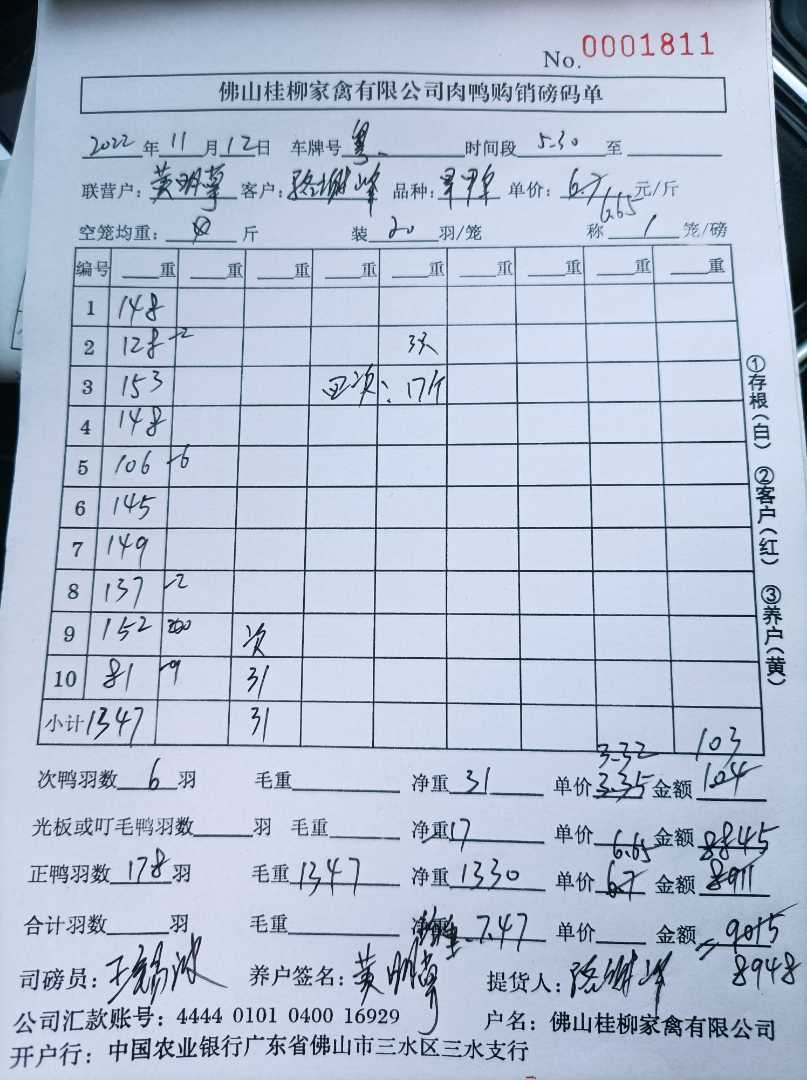 No. 0001811
佛山桂柳家禽有限公司肉鸭购销磅码单
2022 年 11 月 12 日 车牌号 粤 时间段 5-30 至
联营户: 黄明 客户: 峰 品种: 单价: 6.7 元/斤
6.65
空笼均重: 斤 装 20 羽/笼 称 1 笼/磅
编号 重 重 重 重 重 重 重 重
1 148
2 128 -2 3次
3 153 四次: 17斤
4 148
5 106 -6
6 145
7 149
8 137 -2
9 152 次
10 81 -9 31
小计 1347 31
3.32 103
次鸭羽数 6 羽 毛重 净重 31 单价 3.35 金额 104
光板或叮毛鸭羽数 羽 毛重 净重 17 单价 金额
6.65 8845
正鸭羽数 178 羽 毛重 1347 净重 1330 单价 6.7 金额 8911
合计羽数 羽 毛重 净重 7.47 单价 金额 9015
8948
司磅员: 养户签名: 黄明 提货人: 峰
公司汇款账号: 4444 0101 0400 16929 户名: 佛山桂柳家禽有限公司
开户行: 中国农业银行广东省佛山市三水区三水支行
①存根(白) ②客户(红) ③养户(黄)